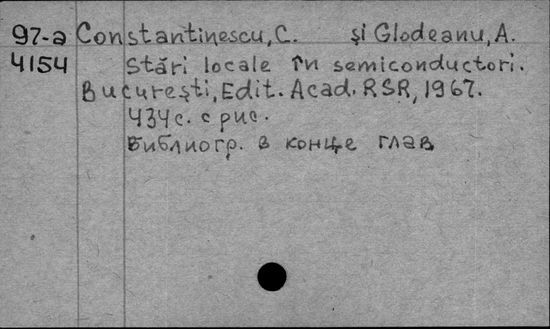 97-a Constantinescu, C. și Glodeanu, A.
4154 Stări locale în semiconductori.
București, Edit. Acad. RSR, 1967.
434с. с рис.
Библиогр. в конце глав